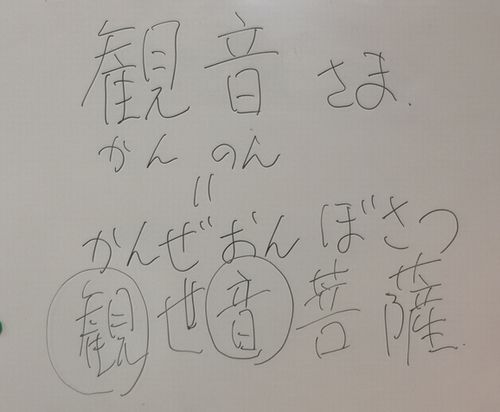 観音さま.
かんのん
=
かんぜおんぼさつ
観世音菩薩.